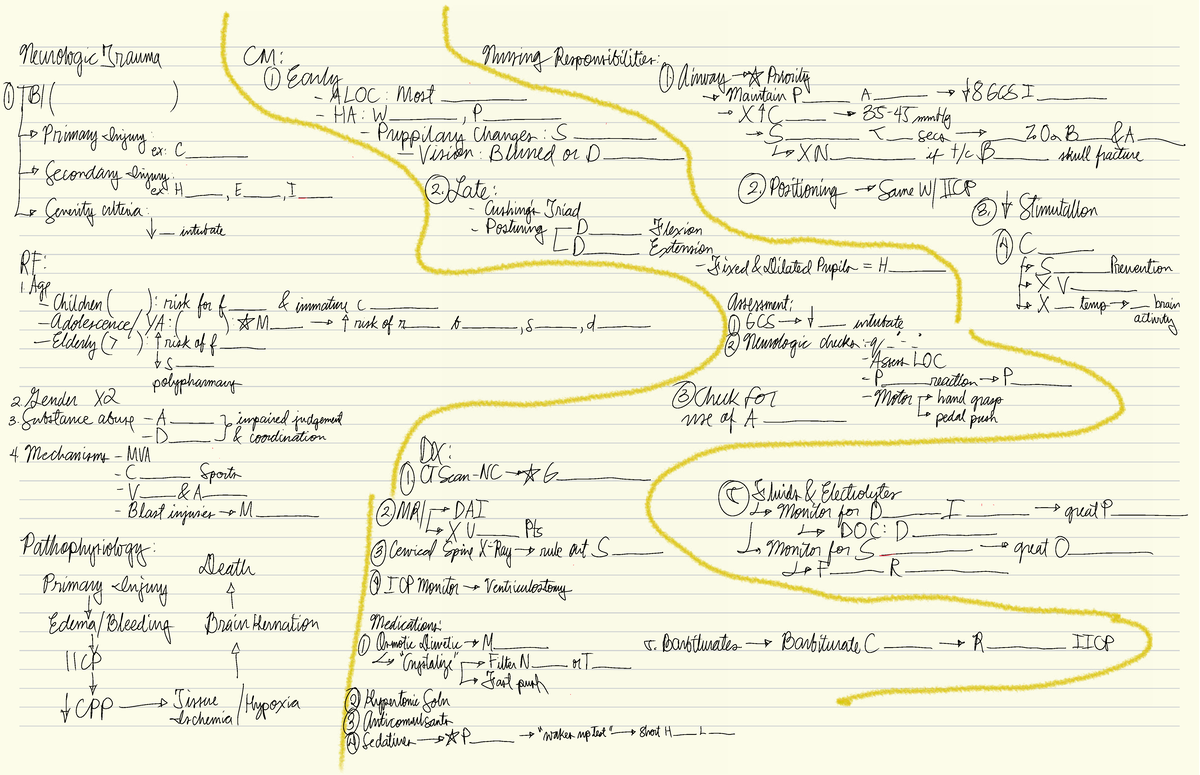 Neurologic Trauma
① TBI (          )
→ Primary Injury
ex: C______
→ Secondary Injury
ex H____, E____, I____
→ Severity criteria:
↓ __ intubate
RF:
1. Age
- Children (    ): risk for f____ & immature c______
- Adolescence/YA: (    ) ☆ M____ → ↑ risk of r____ b______, s____, d______
- Elderly (>    ) ↑ risk of f____
↓ s____
polypharmacy
2. Gender X2
3. Substance abuse - A____ } impaired judgement
- D____ } & coordination
4. Mechanisms - MVA
- C______ Sports
- V____ & A____
- Blast injuries → M______
Pathophysiology:
Primary Injury
↓
Edema/Bleeding
↓
IICP
↓
↓ CPP → Tissue Ischemia / Hypoxia
↑
Brain Herniation
↑
Death
CM:
① Early
- ALOC: Most ________
- HA: W________, P________
- Puppilary Changes: S ________
- Vision: Blurred or D________
②. Late:
- Cushing's Triad
- Posturing [ D______ Flexion
D______ Extension
- Fixed & Dilated Pupils = H______
Assessment:
① GCS → ↓__ intubate
② Neurologic checks: q/ - - -
- Assess LOC
- P______ reaction → P______
- Motor → hand grasp
→ pedal push
③ Check for
use of A ________
DX:
① CT Scan-NC → ☆ G________
② MRI → DAI
→ X U____ Pts
③ Cervical Spine X-Ray → rule out S______
④ ICP Monitor → Ventriculostomy
Medications:
① Osmotic Diuretic → M______
→ "Crystalize" → Filter N____ or T____
→ Fast push
② Hypertonic Soln
③ Anticonvulsants
④ Sedatives → ☆ P______ → "waken up test" → short H___ L___
5. Barbiturates → Barbiturate C ______ → R______ IICP
Nursing Responsibilities:
① Airway → ☆ Priority
→ Maintain P______ A______ → ↓8 GCS I________
→ X ↑ C______ → 35-45 mmHg
→ S________ < __ secs → ____ 2 On B____ & A____
↳ XN________ if t/c B______ skull fracture
② Positioning → Same w/ IICP
③. ↓ Stimutallon
④ C______
→ S______ Prevention
→ X V______
→ X __ temp → __ brain
activity
⑤ Fluids & Electrolytes
↳ Monitor for D________ I______ → great P________
↳ DOC: D________
↳ Monitor for S________ → great O________
↳ F______ R________